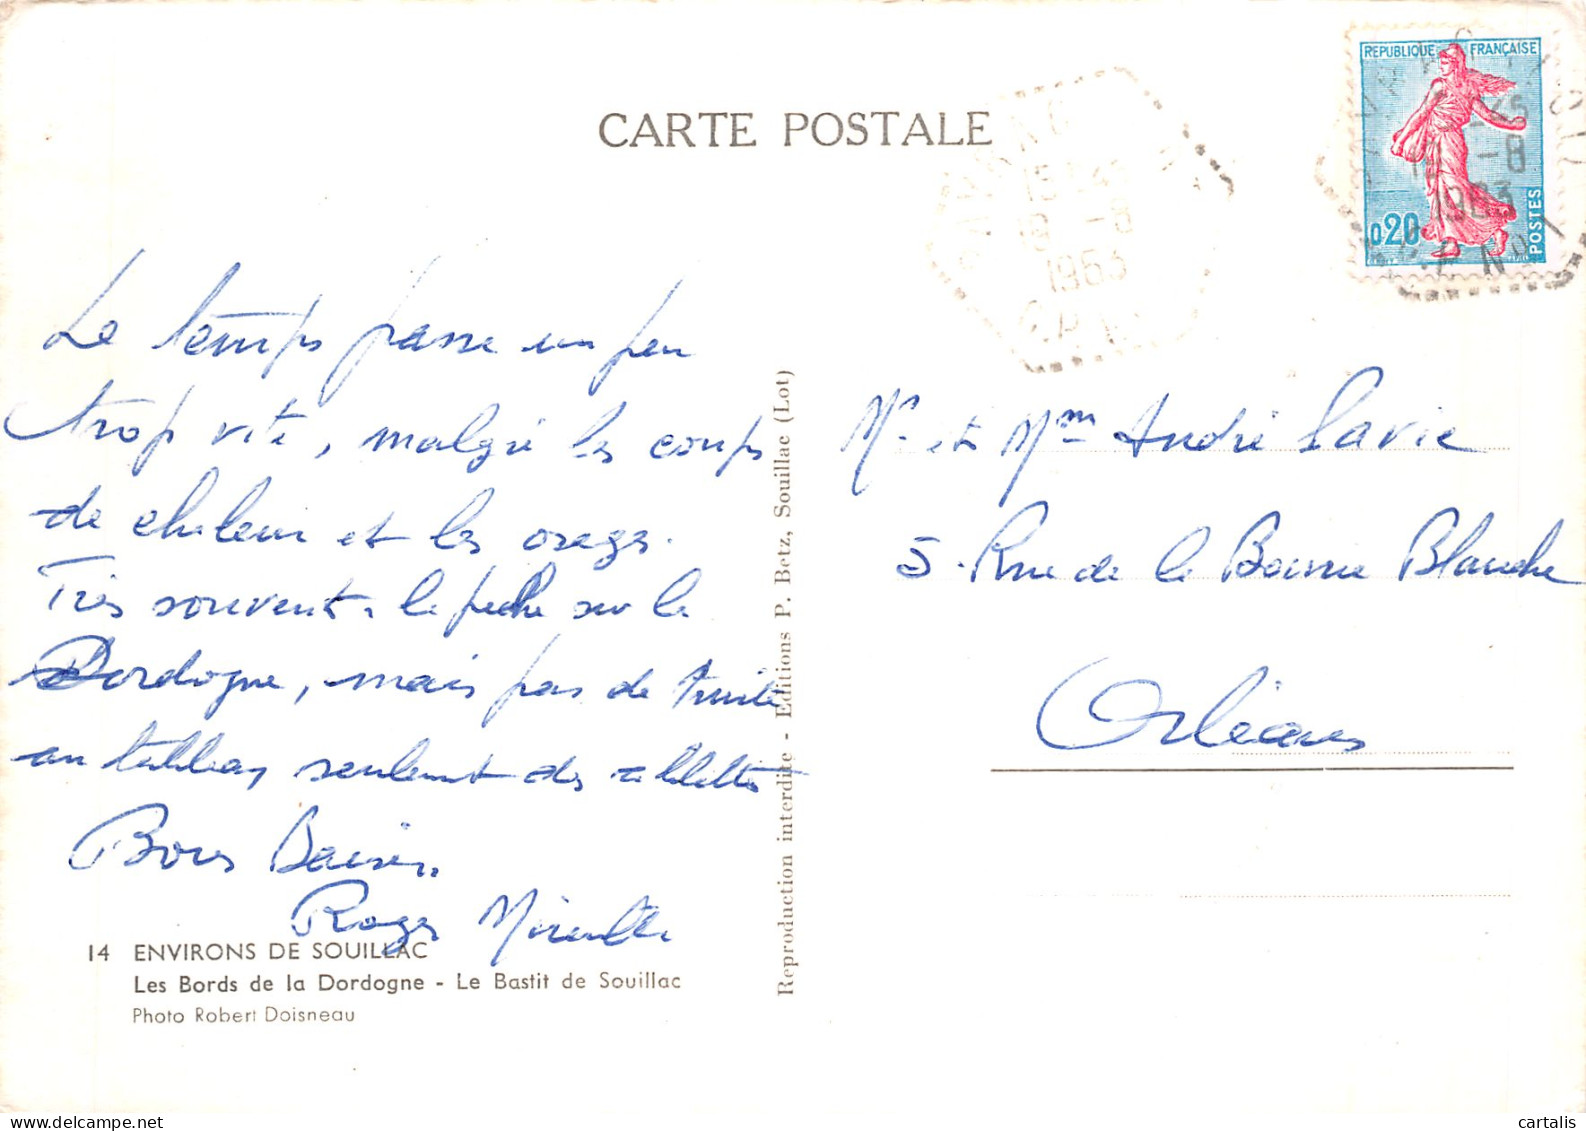 CARTE POSTALE
REPUBLIQUE FRANÇAISE
0,20
POSTES
-8
1963
-8
1963
Le temps passe un peu
trop vite, malgré les coups
de chaleur et les orages.
Très souvent à la pêche sur la
Dordogne, mais pas de truite
au tableau seulement des ablettes
Bons Baisers
Roger Mireille
14 ENVIRONS DE SOUILLAC
Les Bords de la Dordogne - Le Bastit de Souillac
Photo Robert Doisneau
Reproduction interdite - Editions P. Betz, Souillac (Lot)
Mr et Mme André Lavie
5. Rue de la Bourie Blanche
Orléans
cartalis